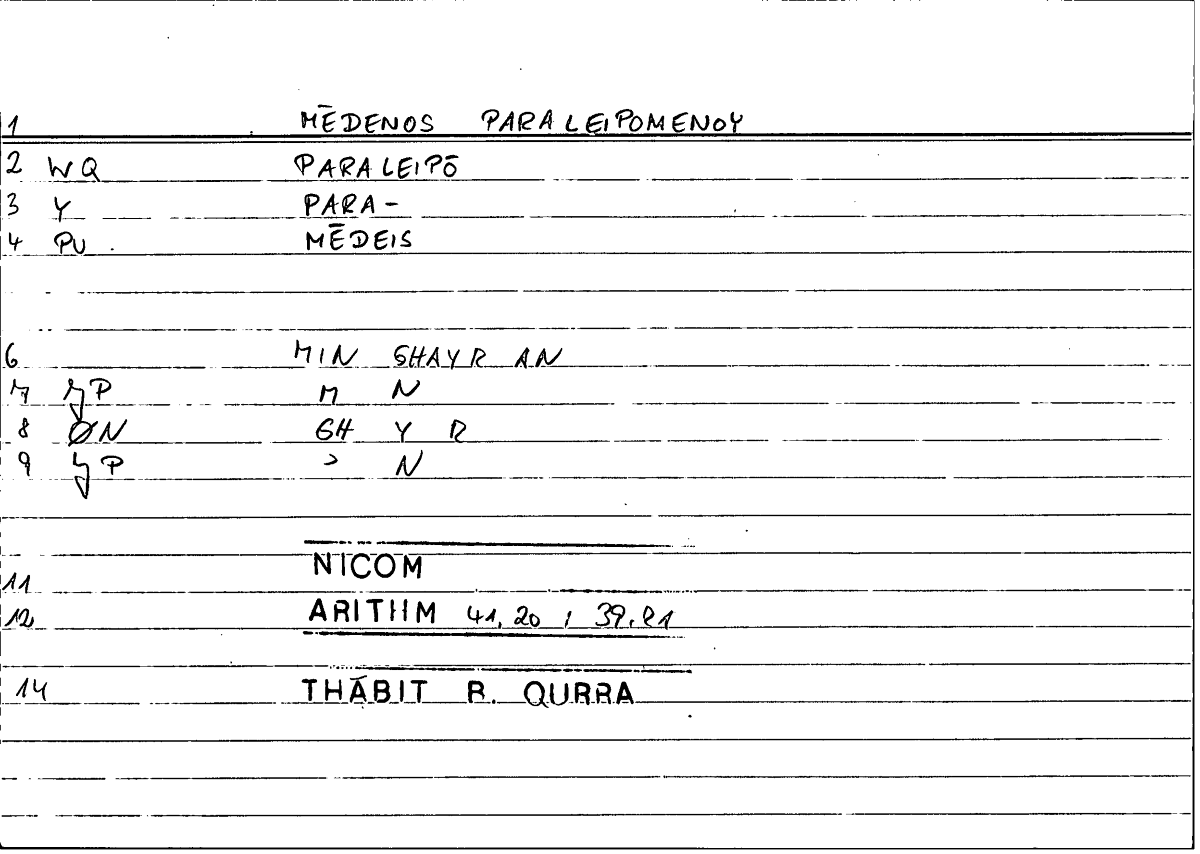 1 MĒDENOS PARALEIPOMENOY
2 WQ PARALEIPŌ
3 Y PARA-
4 PU MĒDEIS
6 MIN GHAYR AN
7 P M N
8 ØN GH Y R
9 P ɔ N
NICOM
11
12 ARITHM 41,20 ; 39.21
14 THĀBIT B. QURRA